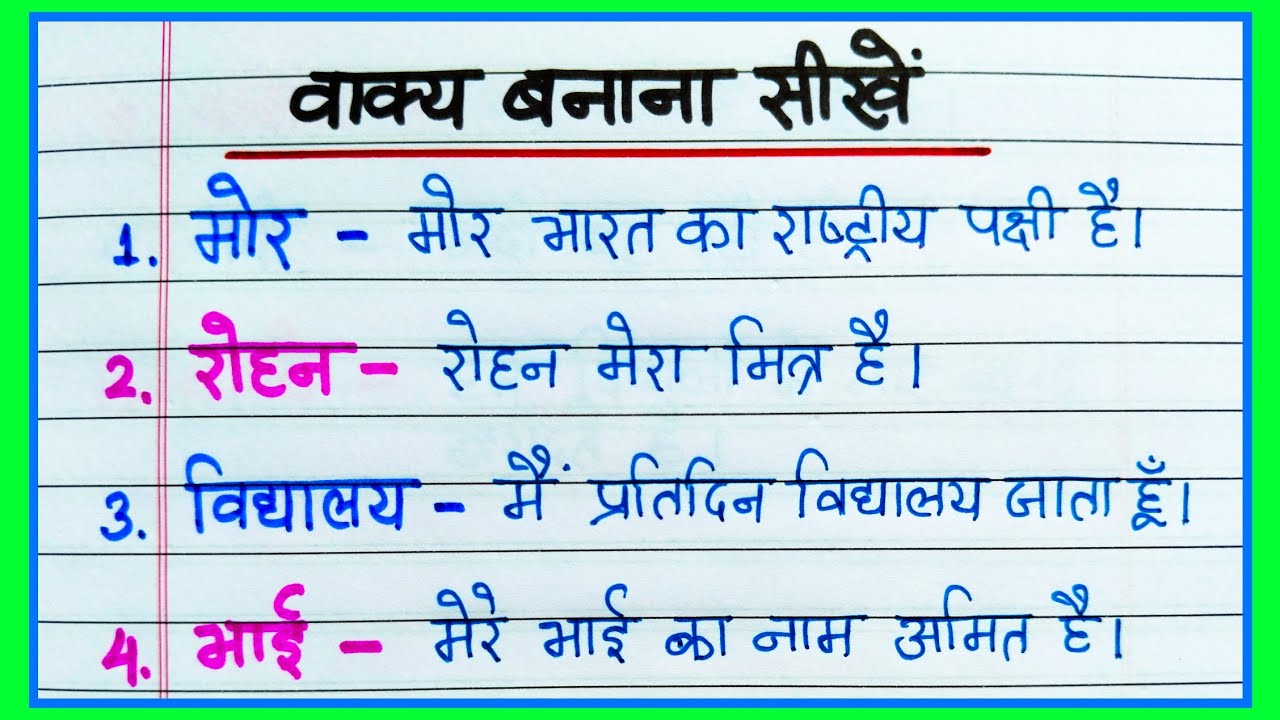 वाक्य बनाना सीखें
1. मोर - मोर भारत का राष्ट्रीय पक्षी है।
2. रोहन - रोहन मेरा मित्र है।
3. विद्यालय - मैं प्रतिदिन विद्यालय जाता हूँ।
4. भाई - मेरे भाई का नाम अमित है।